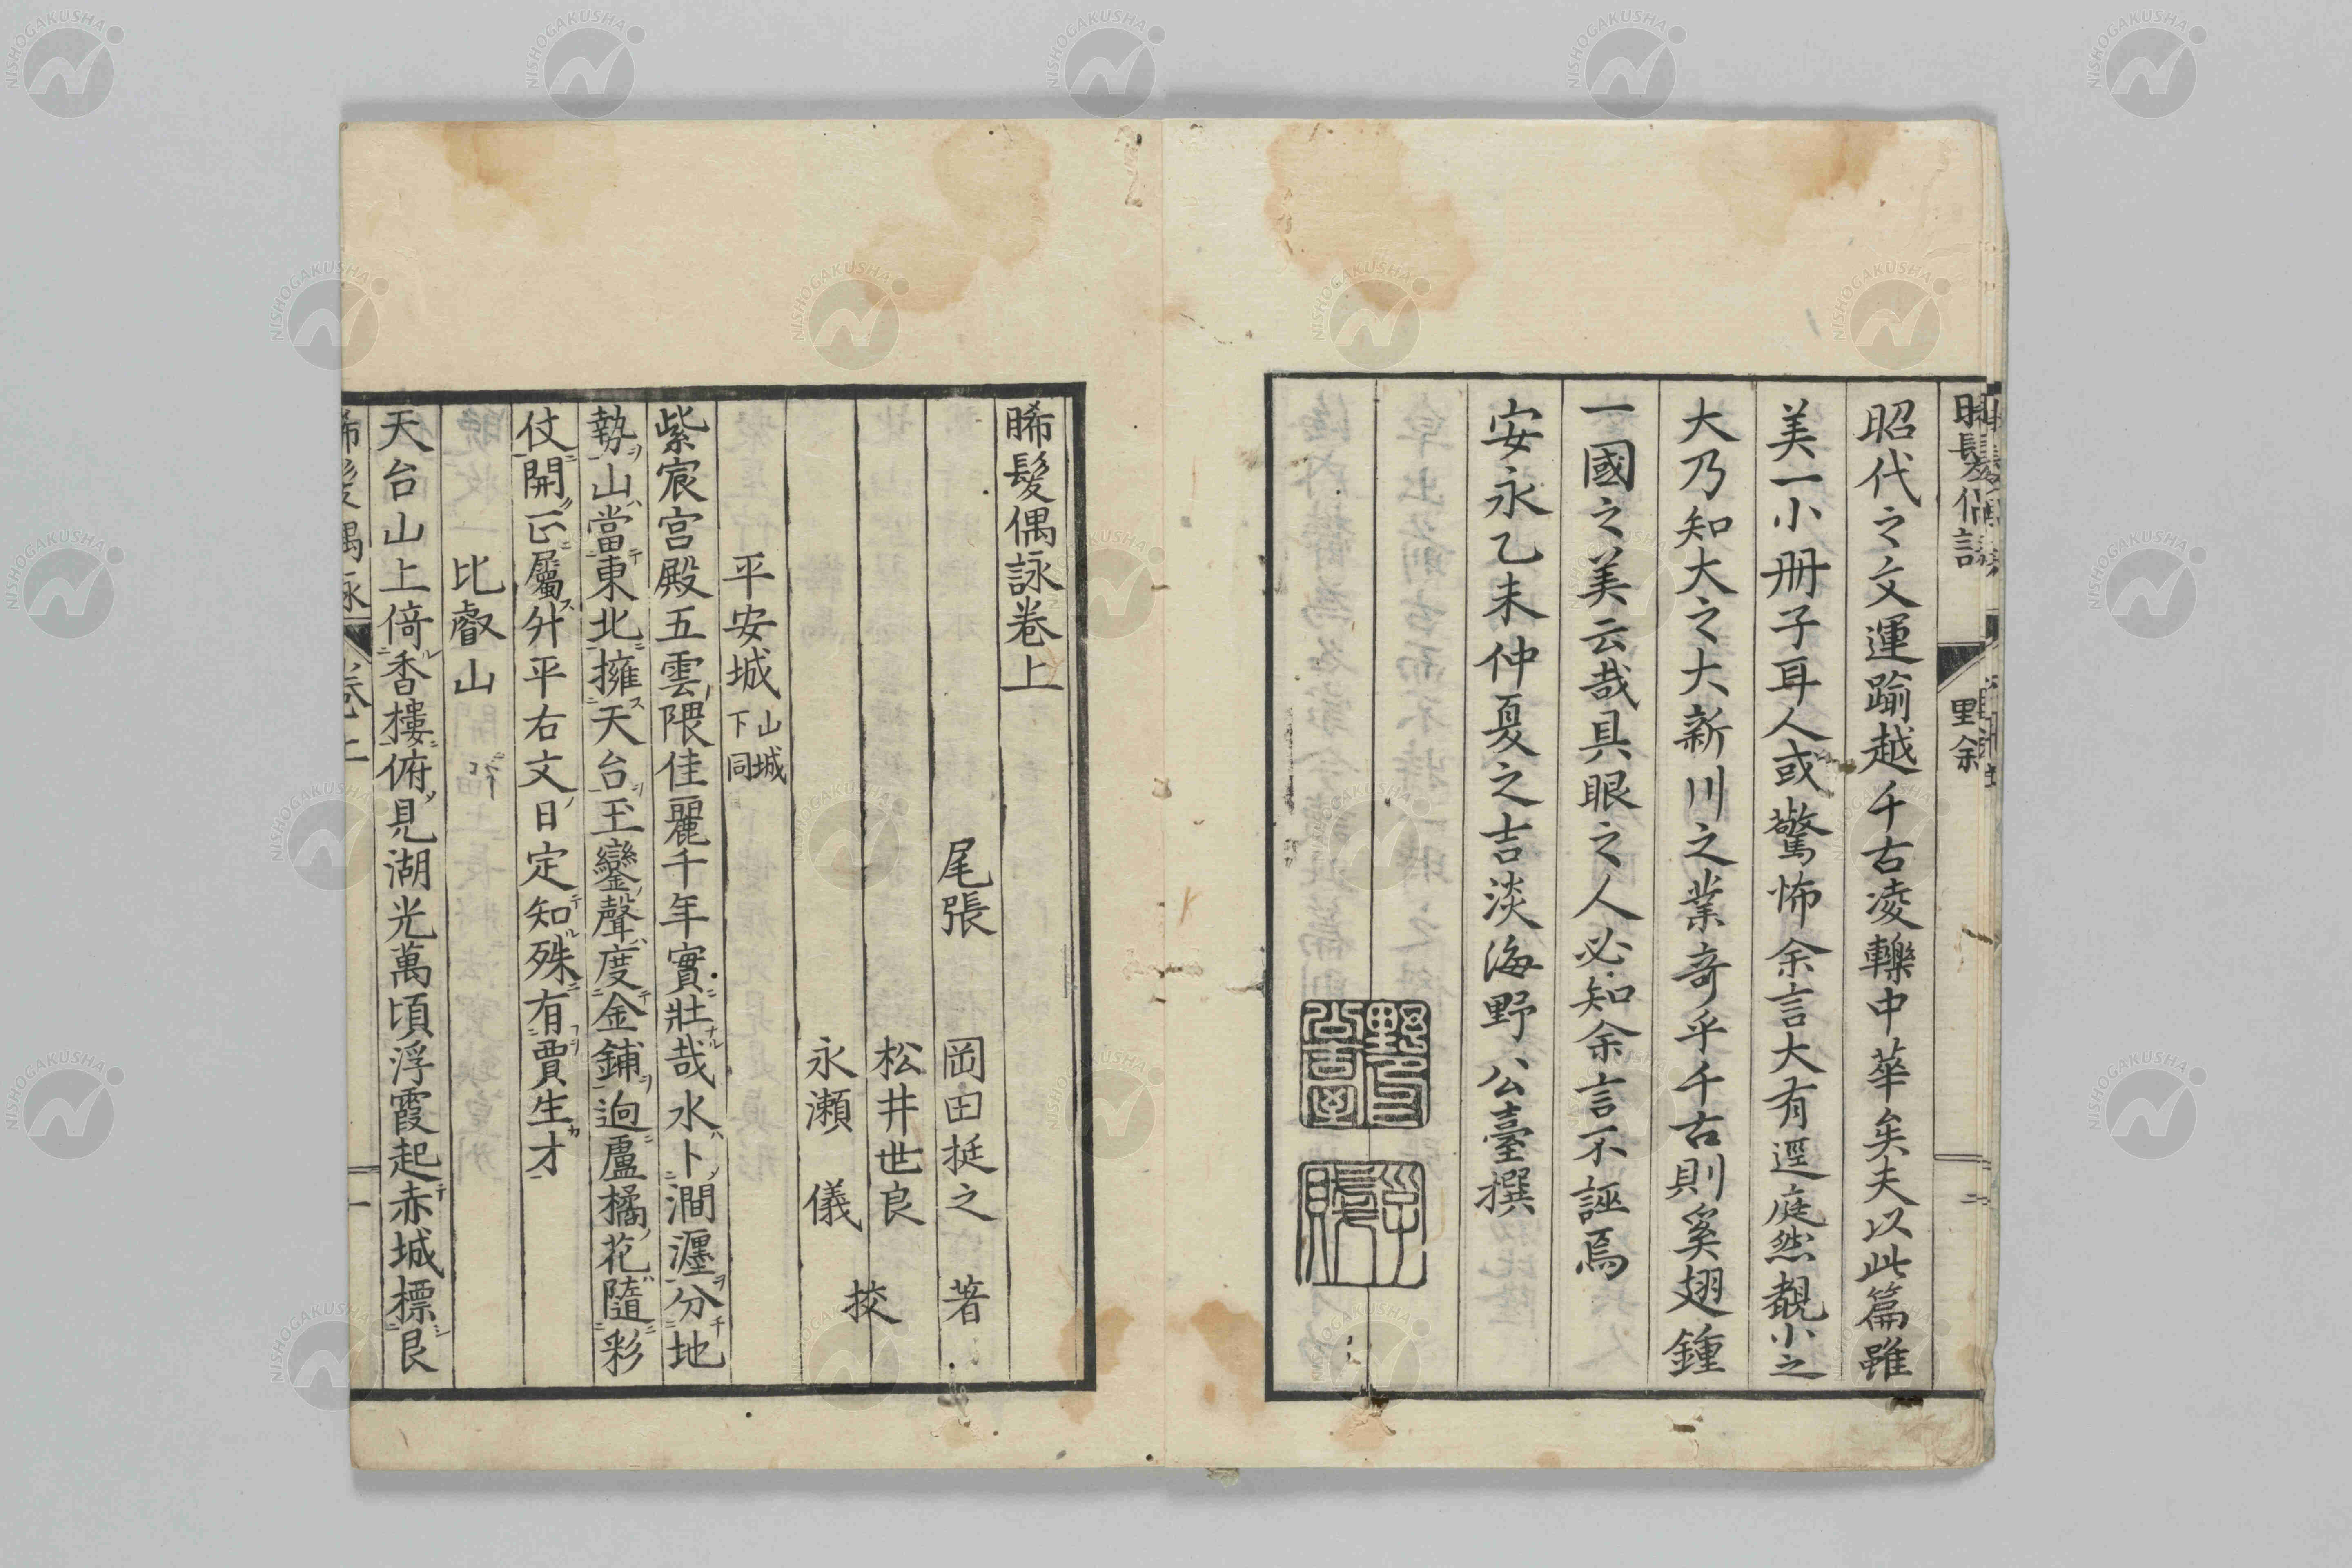 昭代之文運踰越千古凌轢中華矣夫以此篇雖
美一小冊子耳人或驚怖余言大有逕庭然覩小之
大乃知大之大新川之業奇乎千古則奚翅鍾
一國之美云哉具眼之人必知余言不誣焉
安永乙未仲夏之吉淡海野公臺撰
晞髮偶詠卷上
尾張 岡田挺之 著
松井世良
永瀬 儀 挍
平安城 山城下同
紫宸宮殿五雲隈佳麗千年實壯哉水卜澗瀍分地
勢山當東北擁天台玉鑾聲度金鋪逈盧橘花隨彩
仗開正屬升平右文日定知殊有賈生才
比叡山
天台山上倚香樓俯見湖光萬頃浮霞起赤城標艮
NISHOGAKUSHA